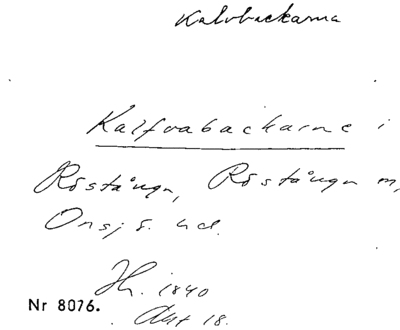 Kalvbackarna
Kalfvabackarne i
Röstånga, Röstånga m,
Onsjö hd.
Hh. 1840
Akt 18.
Nr 8076.